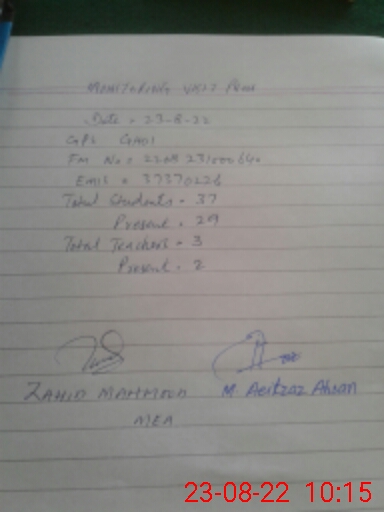 MONITORING VISIT PROOF
Date = 23-8-22
GPS GAHI
FM No = 2208 23100064
Emis = 37370226
Total Students = 37
Present = 29
Total Teachers = 3
Present = 2
ZAHID MAHMOOD M. Aeitzaz Ahsan
MEA
23-08-22 10:15